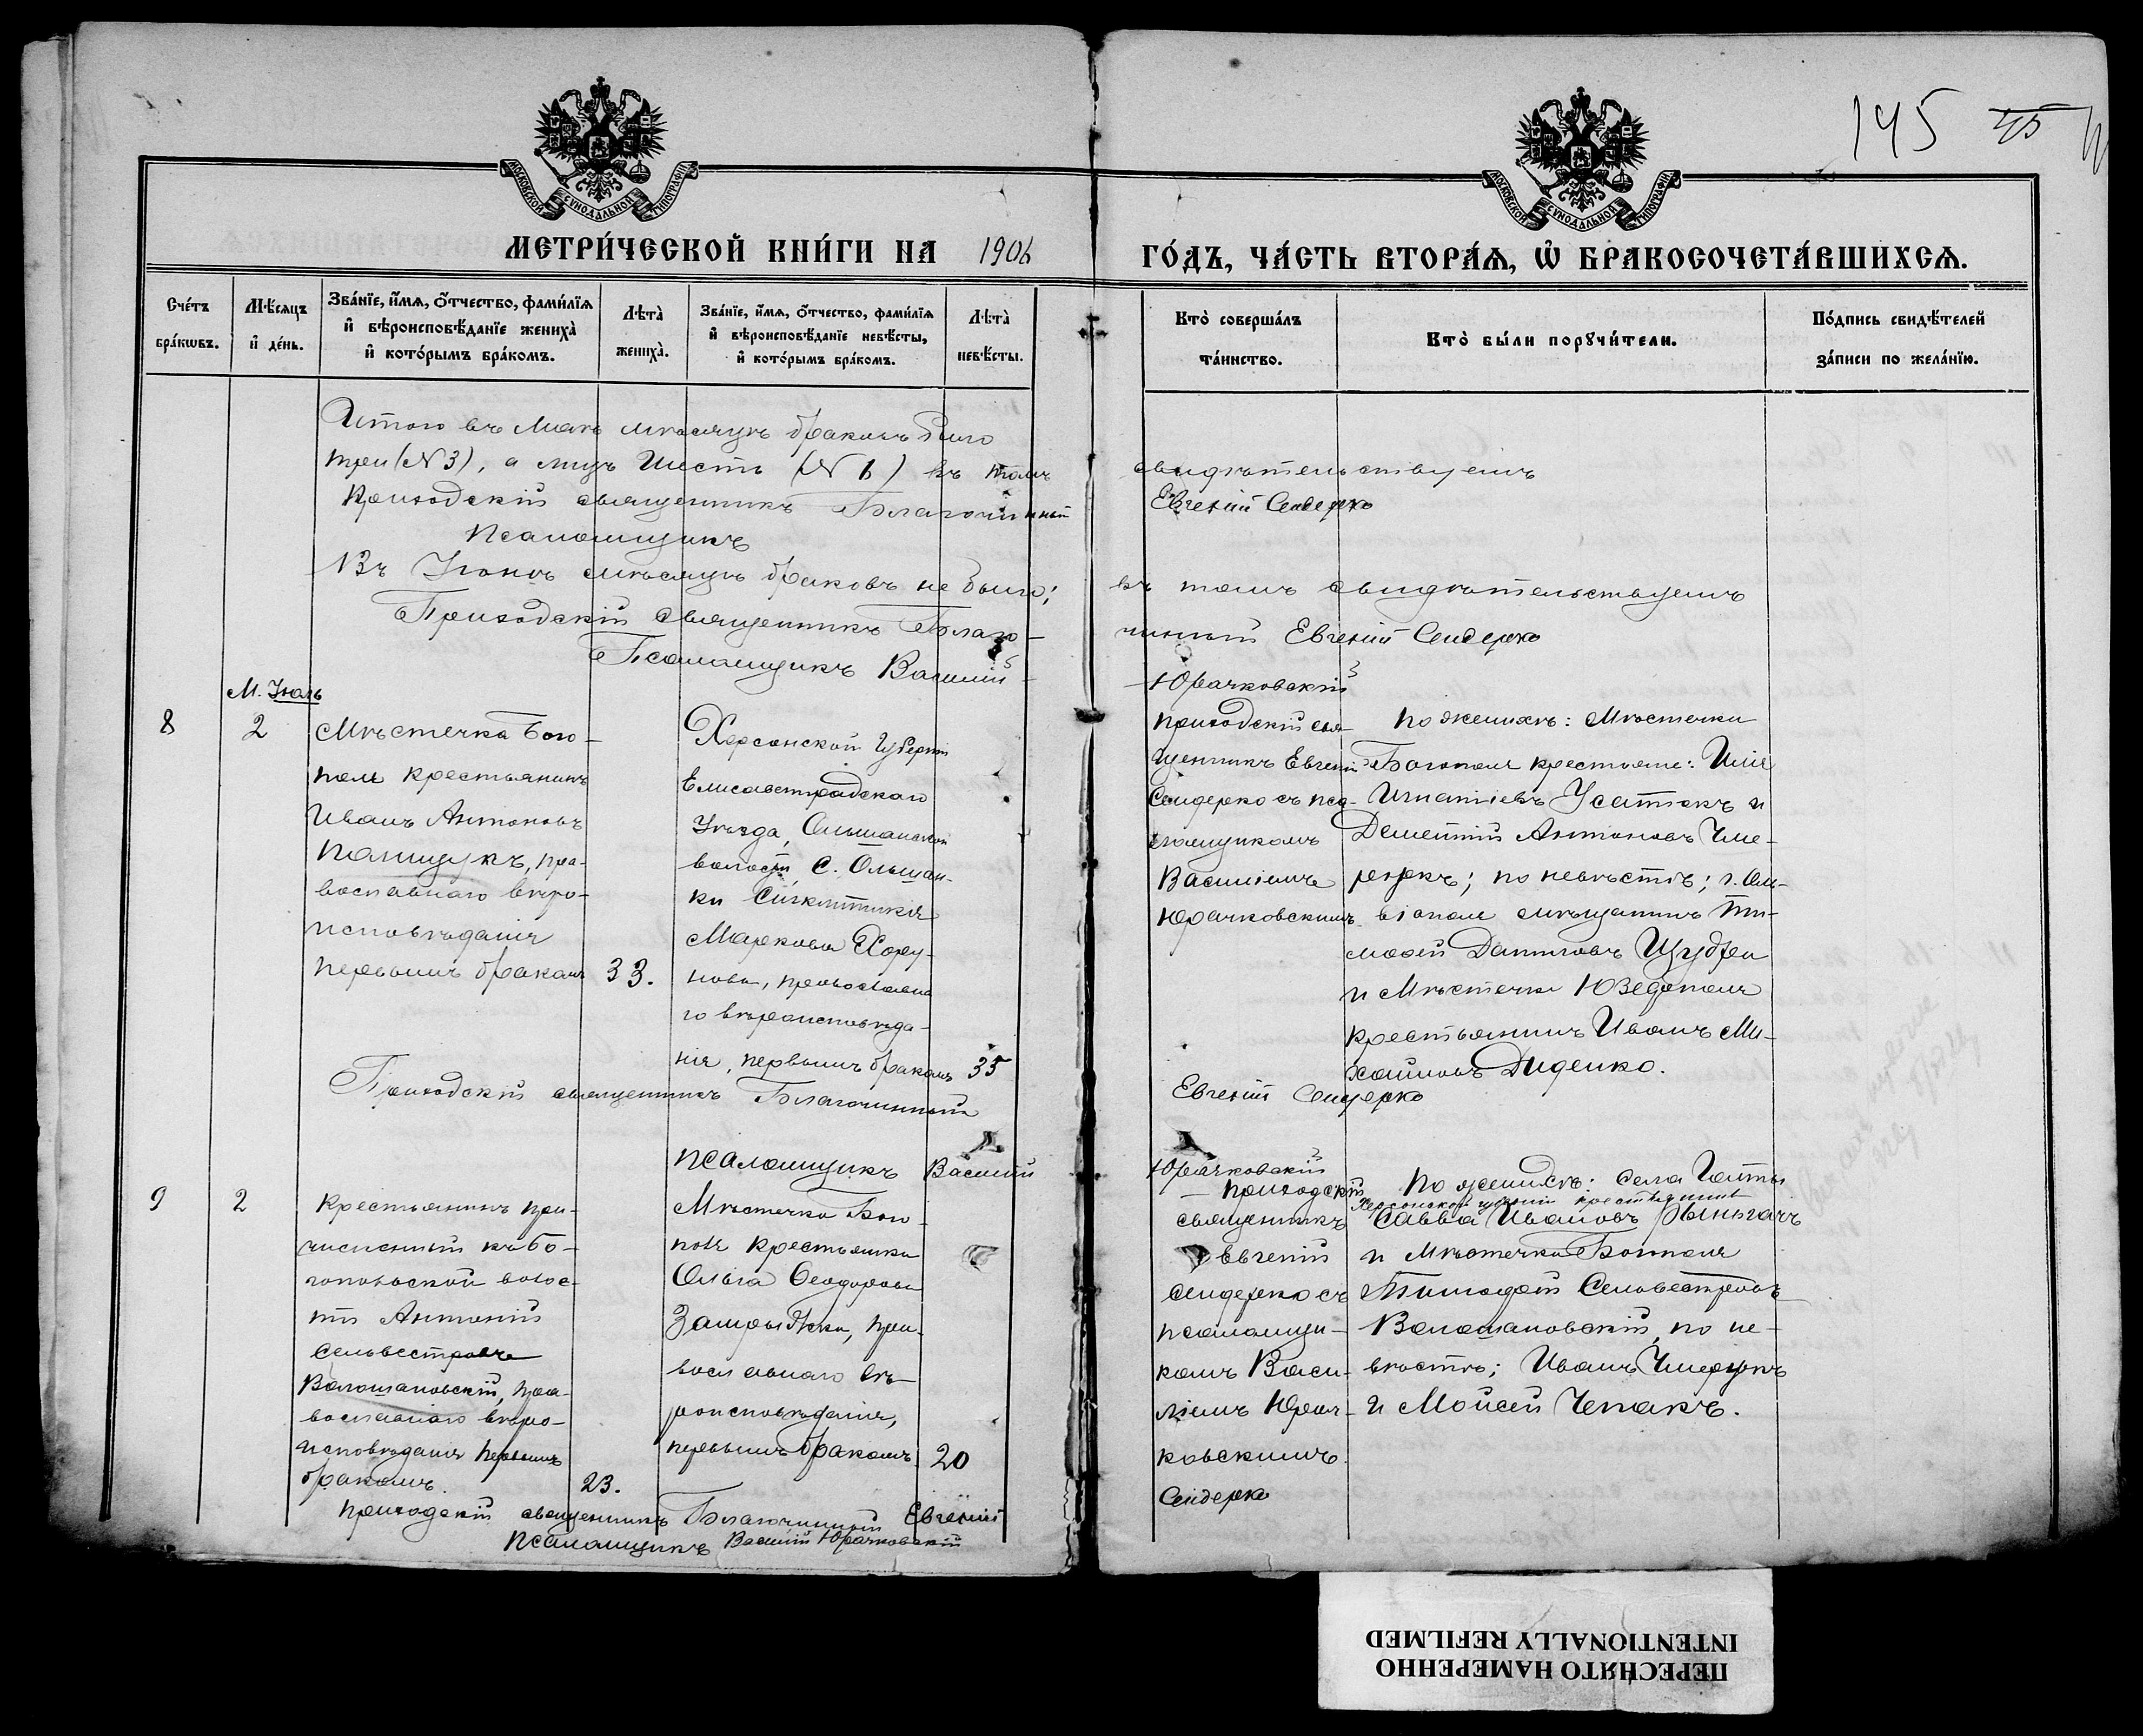 145 45
МОСКОВСКОЙ СѴНОДАЛЬНОЙ ТИПОГРАФІИ
МОСКОВСКОЙ СѴНОДАЛЬНОЙ ТИПОГРАФІИ
МЕТРИ́ЧЕСКОЙ КНИ́ГИ НА 1906
ГО́ДЪ, ЧА́СТЬ ВТОРА́Ѧ, Ѽ БРАКОСОЧЕТА́ВШИХСѦ.
Сче́тъ
бра́кѡвъ.
Мѣ́сѧцъ
и҆ де́нь.
Зва́нїе, и҆́мѧ, ѻ҆́тчество, фами́лїѧ
и҆ вѣроисповѣ́данїе жениха̀
и҆ кото́рымъ бра́комъ.
Лѣта̀
жениха̀.
Зва́нїе, и҆́мѧ, ѻ҆́тчество, фами́лїѧ
и҆ вѣроисповѣ́данїе невѣ́сты,
и҆ кото́рымъ бра́комъ.
Лѣта̀
невѣ́сты.
Кто̀ соверша́лъ
та́инство.
Кто̀ бы́ли порꙋчи́тели.
По́дпись свидѣ́телей
за́писи по жела́нїю.
Итого въ Маѣ мѣсяцѣ браковъ было
три (N 3), а лицъ шесть (N 6) въ томъ
свидѣтельствуемъ
Приходскій священникъ Благочинный
Евгеній Сендерко
Псаломщикъ
Въ Іюнѣ мѣсяцѣ браковъ не было;
въ томъ свидѣтельствуемъ
Приходскій Священникъ Благо-
чинный Евгеній Сендерко
Псаломщикъ Василій
Юрачковскій
М. Іюль
8
2
Мѣстечка Бого-
поля крестьянинъ
Иванъ Антоновъ
Полищукъ, пра-
вославнаго вѣро-
исповѣданія
первымъ бракомъ
33.
Херсонской губерніи
Елисаветградскаго
Уѣзда, Ольшанской
волости, С. Ольшан-
ки Синклитикія
Маркова Хору-
нова, православна
го вѣроисповѣда-
нія, первымъ бракомъ
35
приходскій свя-
щенникъ Евгеній
Сендерко съ пса-
ломщикомъ
Василіемъ
Юрачковскимъ
По женихѣ: Мѣстечка
Богополя крестьяне: Илія
Игнатіевъ Усатюкъ и
Дементій Антоновъ Чме-
рукъ; по невѣстѣ; г. Оль-
віополя мѣщанинъ Ти-
мофей Даниловъ
и Мѣстечка Юзефполя
крестьянинъ Иванъ Ми-
хайловъ Диденко.
Приходскій священникъ Благочинный
Евгеній Сендерко
псаломщикъ Василій
Юрачковскій
9
2
Крестьянинъ при-
численный къ Бо-
гопольской волос-
ти Антоній
Сельвестровъ
Волошановскій, пра-
вославнаго вѣро-
исповѣданія первымъ
бракомъ.
23.
Мѣстечка Бого-
поля крестьянка
Ольга Ѳеодорова
пра-
вославнаго вѣ-
роисповѣданія,
первымъ бракомъ
20
приходскій
священникъ
Евгеній
Сендерко съ
псаломщи-
комъ Васи-
ліемъ Юрач-
ковскимъ.
По женихѣ: Села Голты
Херсонской губерніи крестьянинъ
Савва Ивановъ
и Мѣстечка Богополя
Тимофей Сельвестровъ
Волошановскій, по не-
вѣстѣ; Иванъ Чмерукъ
и Мойсей Чепакъ.
Приходскій священникъ Благочинный Евгеній
Сендерко
Псаломщикъ Василій Юрачковскій
ПЕРЕСНЯТО НАМЕРЕННО
INTENTIONALLY REFILMED